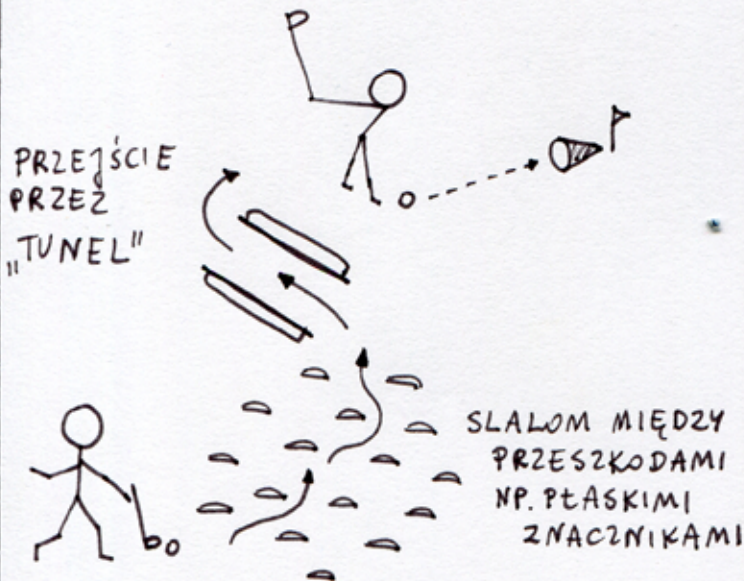 PRZEJŚCIE
PRZEZ
„TUNEL"
SLALOM MIĘDZY
PRZESZKODAMI
NP. PŁASKIMI
ZNACZNIKAMI